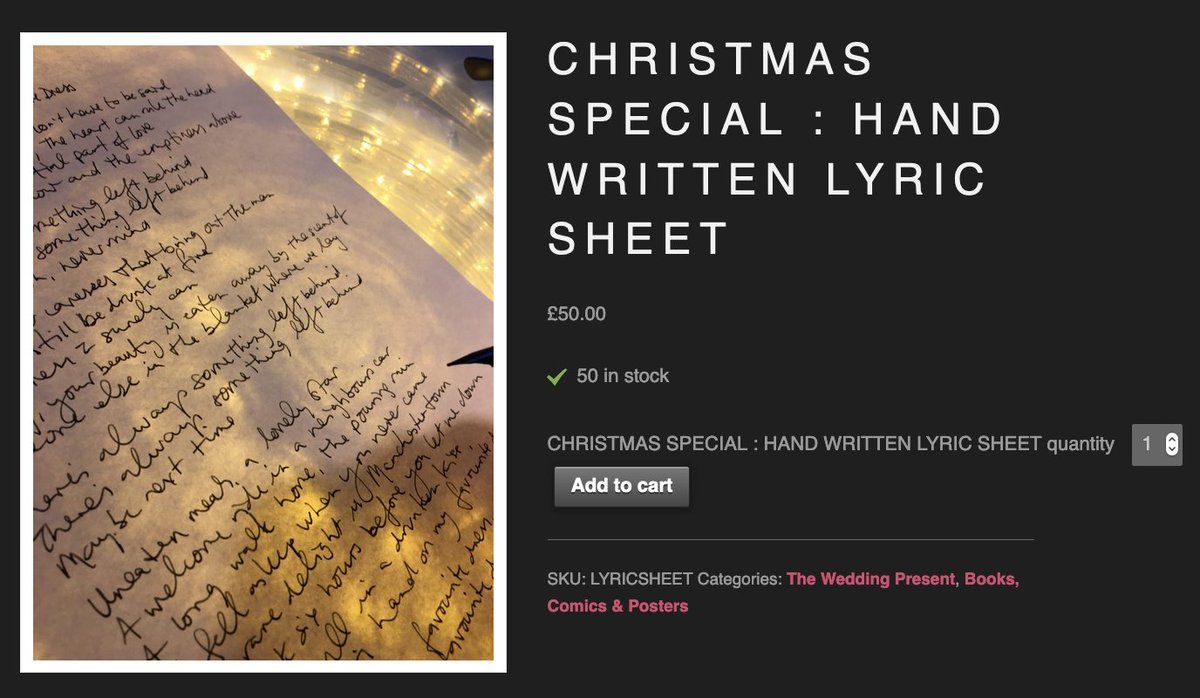 Dress
have to be said
the heart can rule the head
part of love
and the emptiness above
mething left behind
something left behind
never mind
caresses that bring out the man
till be drunk at five
I surely can
your beauty is eaten away by the scent of
one else in the blanket where we lay
here's always something left behind
There's always something left behind
Maybe next time
Uneaten meals, a lonely star
A welcome ride in a neighbours car
A long walk home, the pouring rain
fell asleep when you never came
rare delight in Manchester town
six hours before you let me down
in a drunken kiss
hand on my favourite
favourite dres
favourite d
CHRISTMAS
SPECIAL : HAND
WRITTEN LYRIC
SHEET
£50.00
50 in stock
CHRISTMAS SPECIAL : HAND WRITTEN LYRIC SHEET quantity 1
Add to cart
SKU: LYRICSHEET Categories: The Wedding Present, Books,
Comics & Posters